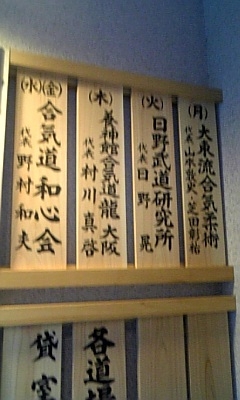 (月)
大東流合気柔術
代表 山本敦央・芝田彰祐
(火)
日野武道研究所
代表 日野 晃
(木)
養神館合気道龍大阪
代表 村川真啓
(水)(金)
合気道和心会
代表 野村和夫
各道場
貸室